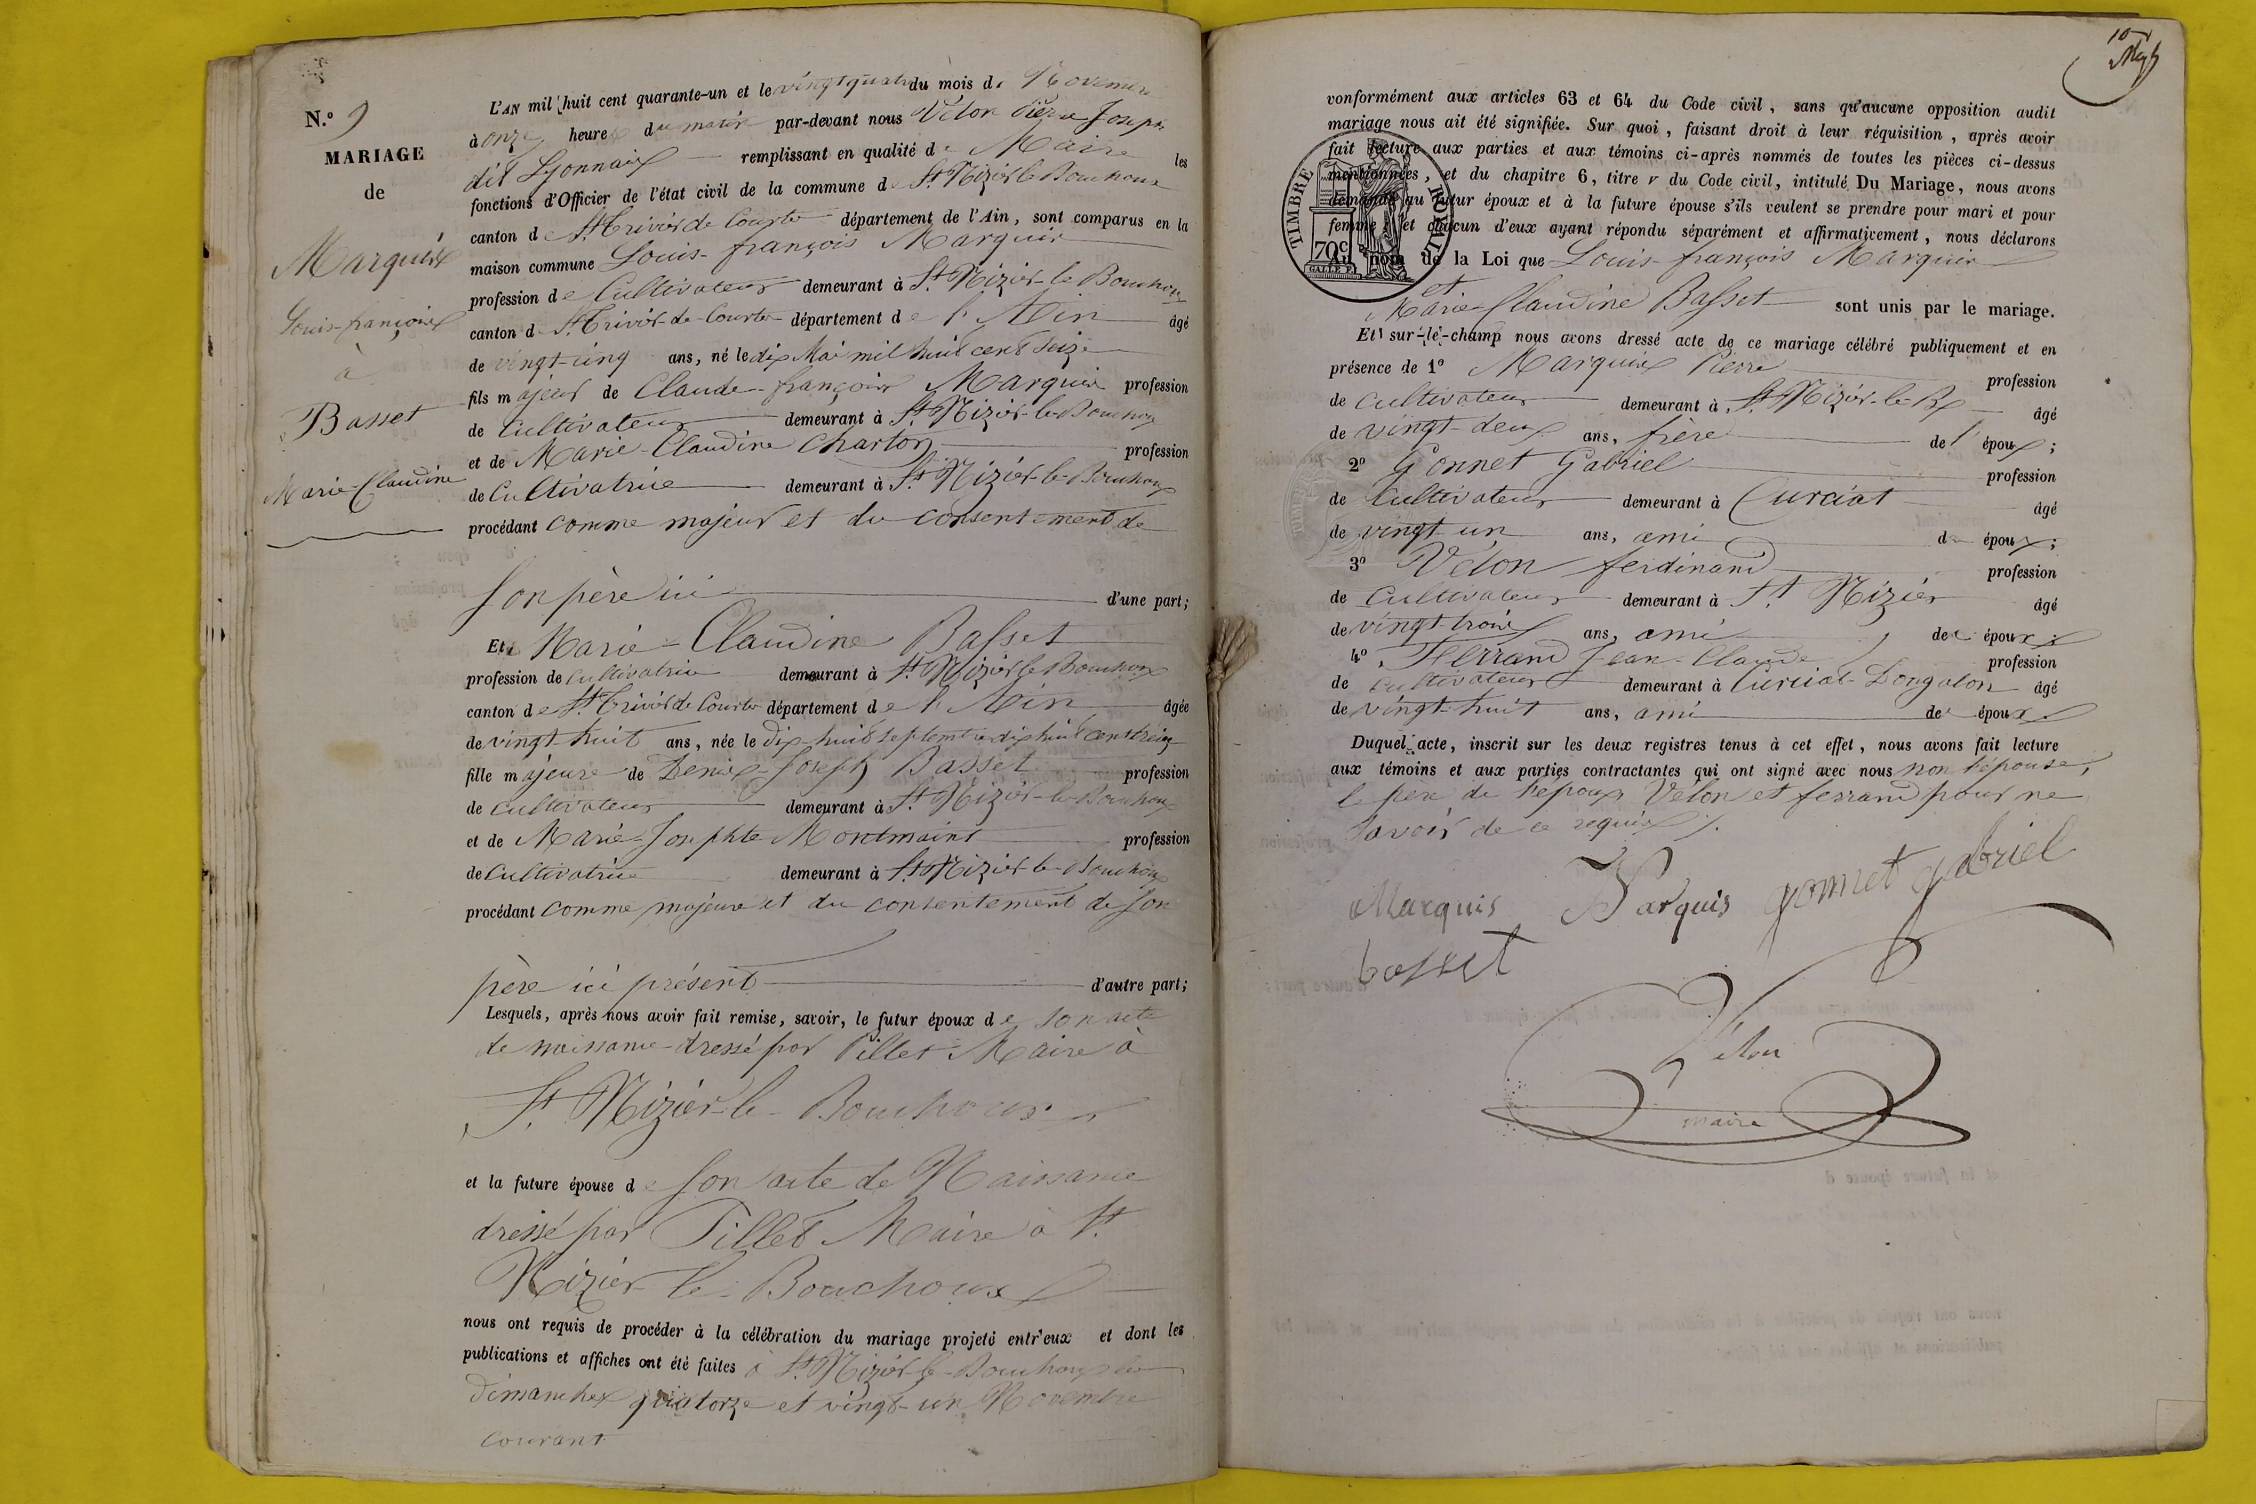 N.º 9
MARIAGE
de
Marquis
Louis-françois
à
Basset
Marie-Claudine
L'AN mil huit cent quarante-un et le vingt quatre du mois de Novembre
à onze heures du matin par-devant nous Vélon Pierre Joseph
dit Lyonnais remplissant en qualité de Maire les
fonctions d'Officier de l'état civil de la commune de St Nizier le Bouchoux
canton de St Trivier de Courtes département de l'Ain, sont comparus en la
maison commune Louis-françois Marquis
profession de Cultivateur demeurant à St Nizier-le Bouchoux
canton de St Trivier-de-Courtes département de l'Ain âgé
de vingt-cinq ans, né le dix Mai mil huit cent seize
fils majeur de Claude-françois Marquis profession
de Cultivateur demeurant à St Nizier-le-Bouchoux
et de Marie-Claudine Charton profession
de Cultivatrice demeurant à St Nizier-le-Bouchoux
procédant comme majeur et du consentement de
son père ici d'une part;
Et Marie-Claudine Basset
profession de cultivatrice demeurant à St Nizier le Bouchoux
canton de St Trivier de Courtes département de l'Ain âgée
de vingt-huit ans, née le dix-huit septembre dix huit cent treize
fille majeure de Denis-Joseph Basset profession
de cultivateur demeurant à St Nizier-le-Bouchoux
et de Marie-Josephte Montmaint profession
de Cultivatrice demeurant à St Nizier-le-Bouchoux
procédant comme majeure et du consentement de son
père ici présent d'autre part;
Lesquels, après nous avoir fait remise, savoir, le futur époux de son acte
de naissance dressé par Pillet Maire à
St Nizier-le-Bouchoux
et la future épouse de son acte de Naissance
dressé par Pillet Maire à St
Nizier-le-Bouchoux
nous ont requis de procéder à la célébration du mariage projeté entr'eux et dont les
publications et affiches ont été faites à St Nizier-le-Bouchoux les
dimanches quatorze et vingt-un Novembre
courant
vonformément aux articles 63 et 64 du Code civil, sans qu'aucune opposition audit
mariage nous ait été signifiée. Sur quoi, faisant droit à leur réquisition, après avoir
fait lecture aux parties et aux témoins ci-après nommés de toutes les pièces ci-dessus
mentionnées, et du chapitre 6, titre v du Code civil, intitulé Du Mariage, nous avons
demandé au futur époux et à la future épouse s'ils veulent se prendre pour mari et pour
femme; et chacun d'eux ayant répondu séparément et affirmativement, nous déclarons
au nom de la Loi que Louis-françois Marquis
et
Marie-Claudine Basset sont unis par le mariage.
TIMBRE ROYAL
70c
GALLE F.
Et sur-le-champ nous avons dressé acte de ce mariage célébré publiquement et en
présence de 1º Marquis Pierre profession
de cultivateur demeurant à St Nizier-le-Bx âgé
de vingt-deux ans, frère de l'époux;
2º Gonnet Gabriel profession
de Cultivateur demeurant à Curciat âgé
de vingt un ans, ami d époux;
3º Vélon ferdinand profession
de Cultivateur demeurant à St Nizier âgé
de vingt-trois ans, ami de époux;
4º Ferrand Jean-Claude profession
de cultivateur demeurant à Curciat-Dongalon âgé
de vingt-huit ans, ami de époux.
Duquel acte, inscrit sur les deux registres tenus à cet effet, nous avons fait lecture
aux témoins et aux parties contractantes qui ont signé avec nous non l'épouse,
le père de l'époux Vélon et ferrand pour ne
savoir de ce requis.
Marquis Marquis gonnet gabriel
basset
Vélon
maire